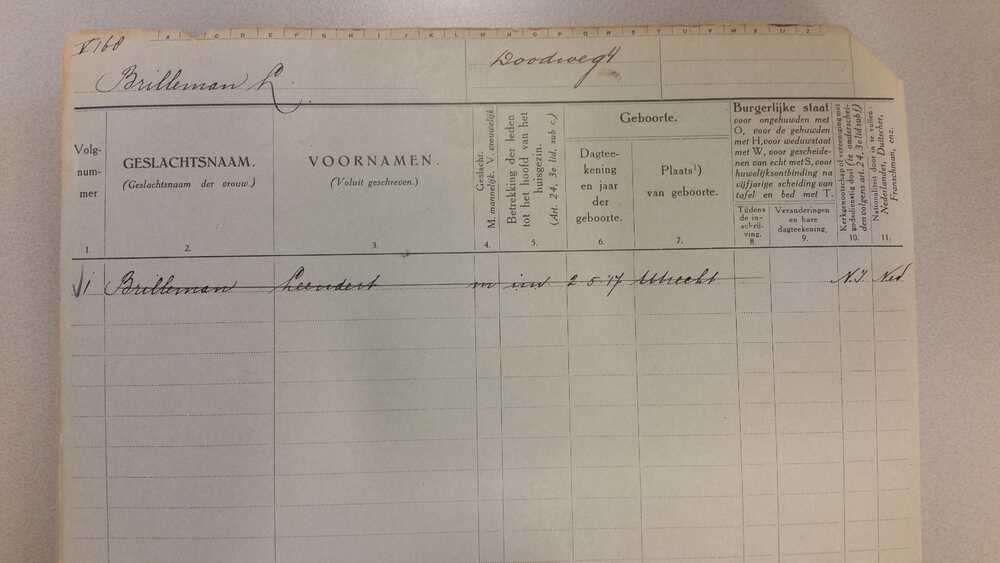 V 168
A B C D E F G H I J K L M N O P Q R S T U V W X Y Z
Brilleman L.
Doodweg 4
Volg-
num-
mer
1.
GESLACHTSNAAM.
(Geslachtsnaam der vrouw.)
2.
VOORNAMEN.
(Voluit geschreven.)
3.
Geslacht.
M. mannelijk. V. vrouwelijk.
4.
Betrekking der leden
tot het hoofd van het
huisgezin.
(Art. 24, 3e lid, sub c.)
5.
Geboorte.
Dagtee-
kening
en jaar
der
geboorte.
6.
Plaats¹)
van geboorte.
7.
Burgerlijke staat
voor ongehuwden met
O, voor de gehuwden
met H, voor weduwstaat
met W, voor gescheide-
nen van echt met S, voor
huwelijksontbinding na
vijfjarige scheiding van
tafel en bed met T.
Tijdens
de in-
schrij-
ving.
8.
Veranderingen
en hare
dagteekening.
9.
Kerkgenootschap of vereeniging met
godsdienstig doel (te onderschei-
den volgens art. 24, 3e lid sub f.)
10.
Nationaliteit door in te vullen:
Nederlander, Duitscher,
Franschman, enz.
11.
1 Brilleman Leendert m inw 2 5 '17 Utrecht N.I. Ned